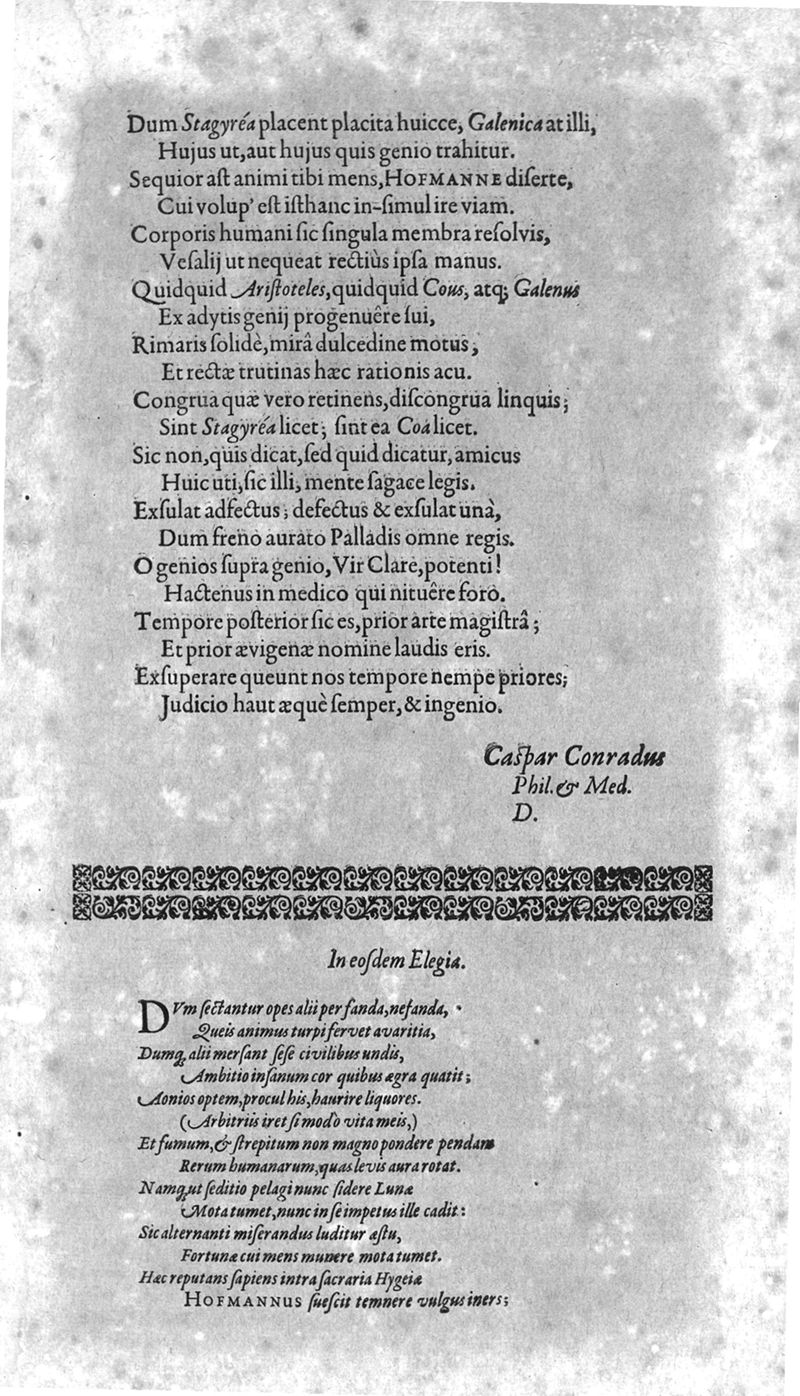 Dum Stagyréa placent placita huicce, Galenica at illi,
Hujus ut, aut hujus quis genio trahitur.
Sequior aſt animi tibi mens, HOFMANNE diſerte,
Cui volup' eſt iſthanc in-ſimul ire viam.
Corporis humani ſic ſingula membra reſolvis,
Veſalij ut nequeat rectiùs ipſa manus.
Quidquid Ariſtoteles, quidquid Cous, atq; Galenus
Ex adytis genij progenuêre ſui,
Rimaris ſolidè, mirâ dulcedine motus,
Et rectæ trutinas hæc rationis acu.
Congrua quæ vero retinens, diſcongrua linquis;
Sint Stagyréa licet; ſint ea Coa licet.
Sic non, quis dicat, ſed quid dicatur, amicus
Huic uti, ſic illi, mente ſagace legis.
Exſulat adfectus; defectus & exſulat unà,
Dum freno aurato Palladis omne regis.
O genios ſupra genio, Vir Clare, potenti!
Hactenus in medico qui nituêre foro.
Tempore poſterior ſic es, prior arte magiſtrâ;
Et prior ævigenæ nomine laudis eris.
Exſuperare queunt nos tempore nempe priores;
Judicio haut æquè ſemper, & ingenio.
Caſpar Conradus
Phil. & Med.
D.
In eoſdem Elegia.
DVm ſectantur opes alii per fanda, nefanda,
Queis animus turpi fervet avaritia,
Dumq; alii merſant ſeſe civilibus undis,
Ambitio inſanum cor quibus ægra quatit;
Aonios optem, procul his, haurire liquores.
(Arbitriis iret ſi modò vita meis,)
Et fumum, & ſtrepitum non magno pondere pendam
Rerum humanarum, quas levis aura rotat.
Namq; ut ſeditio pelagi nunc ſidere Lunæ
Mota tumet, nunc in ſe impetus ille cadit:
Sic alternanti miſerandus luditur æſtu,
Fortunæ cui mens munere mota tumet.
Hæc reputans ſapiens intra ſacraria Hygeiæ
HOFMANNUS ſueſcit temnere vulgus iners;